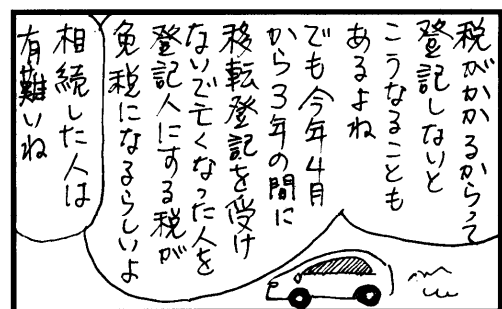 税がかかるからって
登記しないと
こうなることも
あるよね
でも今年4月
から3年の間に
移転登記を受け
ないで亡くなった人を
登記人にする税が
免税になるらしいよ
相続した人は
有難いね